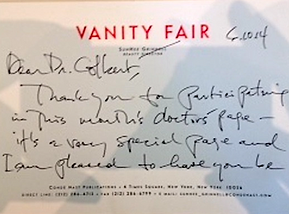 VANITY FAIR
SUNHEE GRINNELL
BEAUTY DIRECTOR
6.10.14
Dear Dr. Colbert,
Thank you for participating
in this month's doctors page -
it's a very special page and
I am pleased to have you be
CONDE NAST PUBLICATIONS • 4 TIMES SQUARE, NEW YORK, NEW YORK 10036
DIRECT LINE: (212) 286-4713 • FAX (212) 286-6799 • E MAIL: SUNHEE_GRINNELL@CONDENAST.COM